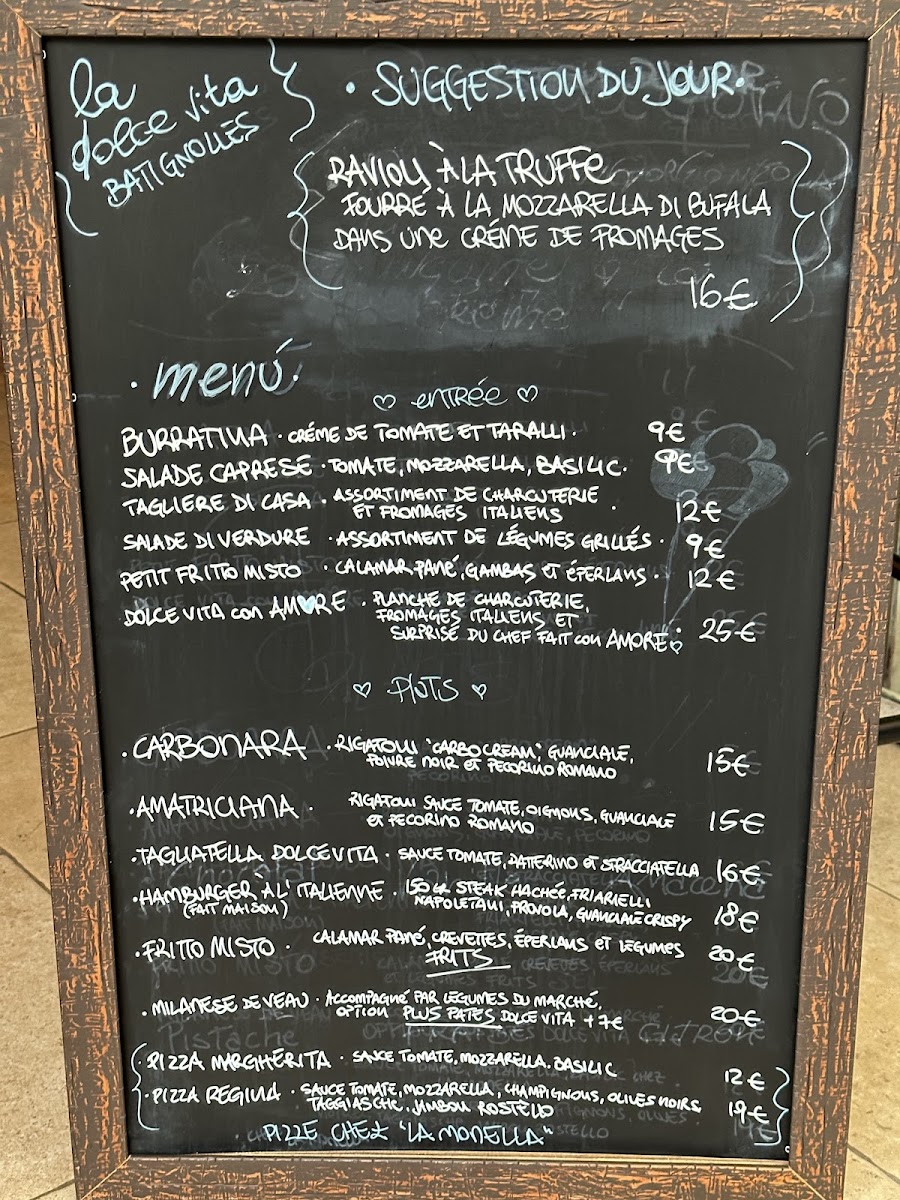 la
dolce vita
BATIGNOLLES
· SUGGESTION DU JOUR·
RAVIOLI À LA TRUFFE
FOURRÉ À LA MOZZARELLA DI BUFALA
DANS UNE CRÉME DE FROMAGES
16€
· menú ·
♡ entRÉe ♡
BURRATINA · CRÉME DE TOMATE ET TARALLI · 9€
SALADE CAPRESE · TOMATE, MOZZARELLA, BASILIC. 9€
TAGLIERE DI CASA · ASSORTIMENT DE CHARCUTERIE
ET FROMAGES ITALIENS · 12€
SALADE DI VERDURE · ASSORTIMENT DE LÉGUMES GRILLÉS · 9€
PETIT FRITTO MISTO · CALAMAR PANÉ, GAMBAS ET ÉPERLANS · 12€
DOLCE VITA con AMORE · PLANCHE DE CHARCUTERIE,
FROMAGES ITALIENS ET
SURPRISE DU CHEF FAIT con AMORE♡ · 25€
♡ PlATS ♡
· CARBONARA · RIGATONI "CARBOCREAM", GUANCIALE,
POIVRE NOIR ET PECORINO ROMANO 15€
· AMATRICIANA · RIGATONI SAUCE TOMATE, OIGNONS, GUANCIALE
ET PECORINO ROMANO 15€
· TAGLIATELLA DOLCEVITA · SAUCE TOMATE, DATTERINO ET STRACCIATELLA 16€
· HAMBURGER À L'ITALIENNE · 150 GR STEAK HACHÉE, FRIARIELLI
(FAIT MAISON) NAPOLETANI, PROVOLA, GUANCIALE CRISPY 18€
· FRITTO MISTO · CALAMAR PANÉ, CREVETTES, ÉPERLANS ET LEGUMES 20€
FRITS
· MILANESE DE VEAU · ACCOMPAGNÉ PAR LÉGUMES DU MARCHÉ,
OPTION PLUS PATES DOLCE VITA +7€ 20€
· PIZZA MARGHERITA · SAUCE TOMATE, MOZZARELLA, BASILIC 12€
· PIZZA REGINA · SAUCE TOMATE, MOZZARELLA, CHAMPIGNONS, OLIVES NOIRS
TAGGIASCHE, JAMBON ROSTELLO
PIZZE CHEZ "LA MONELLA"